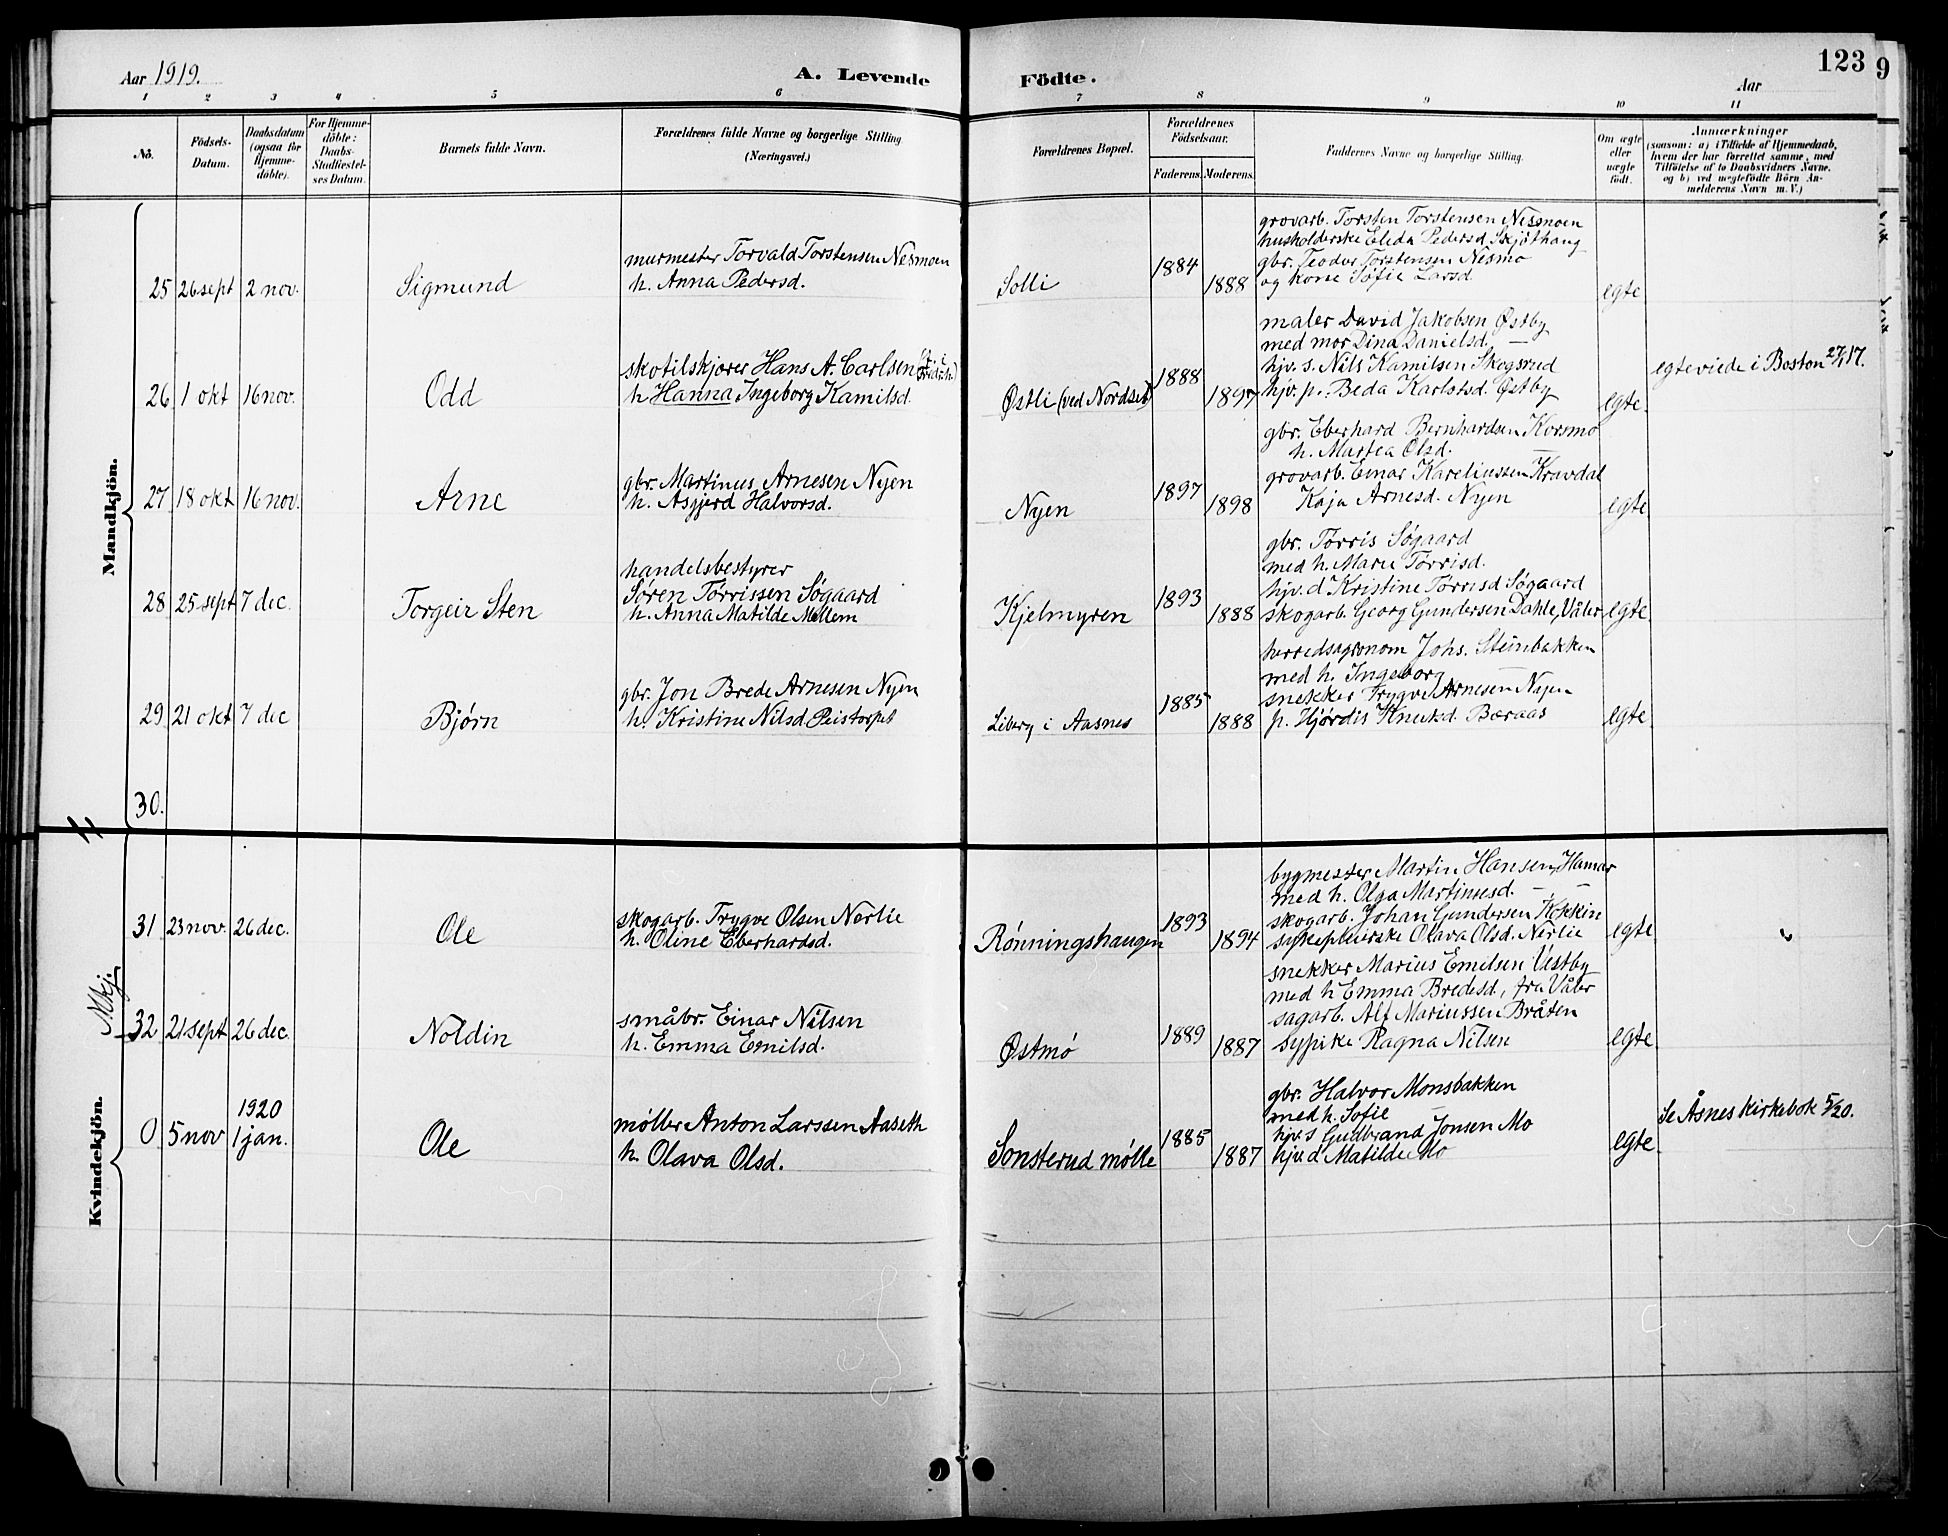 Aar 1919.
A. Levende Födte.
Aar
123
9
1 2 3 4 5 6 7 8 9 10 11
Nô.
Födsels-
Datum.
Daabsdatum
(ogsaa for
Hjemme-
döbte).
For Hjemme-
döbte:
Daabs-
Stadfæstel-
ses Datum.
Barnets fulde Navn.
Forældrenes fulde Navne og borgerlige Stilling
(Næringsvei.)
Forældrenes Bopæl.
Forældrenes
Födselsaar.
Faderens. Moderens.
Faddernes Navne og borgerlige Stilling.
Om ægte
eller
uægte
født.
Anmærkninger
(saasom: a) i Tilfælde af Hjemmedaab,
hvem der har forrettet samme, med
Tilföielse af to Daabsvidners Navne,
og b) ved uægtefödte Börn An-
melderens Navn m. V.)
Mandkjön.
25 26 sept 2 nov.
Sigmund
murmester Torvald Torstensen Nesmoen
h. Anna Pedersd.
Solli
1884
1888
grovarb. Torsten Torstensen Nesmoen
husholderske Eleda Pedersd Skjøthaug
gbr. Teodor Torstensen Nesmo
og kone Sofie Larsd.
egte
26 1 okt 16 nov.
Odd
skotilskjærer Hans A. Carlsen
h Hanna Ingeborg Kamilsd.
Østli (ved Nordset)
1888
1897
maler David Jakobsen Østby
med mor Dina Danielsd. —
hjv. s. Nils Kamilsen Skogsrud
hjv. p. Beda Karlotsd. Østby
egte.
egteviede i Boston 27/1 17.
27 18 okt 16 nov.
Arne
gbr. Martinus Arnesen Nyen
h. Asgjerd Halvorsd.
Nyen
1897
1898
gbr. Eberhard Bernhardsen Korsmo
h. Martea Olsd. —
grovarb. Einar Kareliussen Kravdal
Kaja Arnesd. Nyen
egte.
28 25 sept 7 dec.
Torgeir Sten
handelsbestyrer
Søren Tørrissen Søgaard
h. Anna Matilde Mellem
Kjelmyren
1893
1888
gbr. Tørris Søgaard
med h. Maru Tørrisd.
hjv. d Kristine Tørrisd Søgaard
skogarb. Georg Gundersen Dahle, Våler
egte.
29 21 okt 7 dec
Bjørn
gbr. Jon Brede Arnesen Nyen
h. Kristine Nilsd
Liberg i Aasnes
1885
1888
herredsagronom Johs. Steinbakken
med h. Ingeborg —
snekker Trygve Arnesen Nyen
p. Hjørdis Knutsd. Bæraas
egte
30.
Kvindekjön.
Mkj.
31 23 nov. 26 dec.
Ole
skogarb. Trygve Olsen Nerlie
h. Oline Eberhardsd.
Rønningshaugen
1893
1894
bygmester Martin Hansen, Hamar
med h. Olga Martinusd. — —
skogarb. Johan Gundersen
sykepleierske Olava Olsd. Nerlie
egte
32 21 sept 26 dec.
Noldin
småbr. Einar Nilsen
h. Emma Emilsd.
Østmø
1889
1887
snekker Marius Emilsen Vestby
med h Emma Bredesd, fra Våler
sagarb. Alf Mariussen Bråten
sypike Ragna Nilsen
egte
0 5 nov 1920
1 jan.
Ole
møller Anton Larssen Aaseth
h. Olava Olsd.
Sonsterud mølle
1885
1887
gbr. Halvor Monsbakken
med h. Sofie —
hjv. s Gudbrand Jonsen Mo
hjv. d Matilde Mo
egte
Se Åsnes kirkebok 5/20.